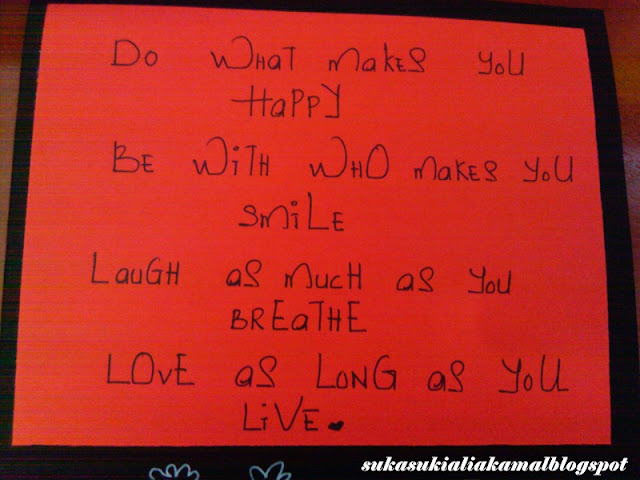 Do What makes you
Happy
Be with who makes you
smile
Laugh as much as you
breathe
Love as long as you
live
sukasukialiakamalblogspot